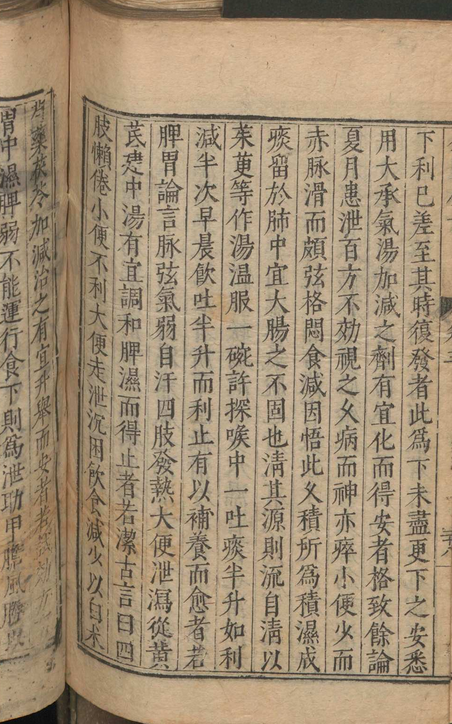 下利已差至其時復發者此為下未盡更下之安悉
用大承氣湯加減之劑有宜化而得安者格致餘論
夏月患泄百方不効視之乆病而神亦瘁小便少而
赤脉滑而頗弦格悶食減因悟此乆積所為積濕成
痰留於肺中宜大腸之不固也清其源則流自清以
茱萸等作湯温服一碗許探喉中一吐痰半升如利
減半次早晨飲吐半升而利止有以補養而愈者若
脾胃論言脉弦氣弱自汗四肢發熱大便泄瀉從黄
芪建中湯有宜調和脾濕而得止者若潔古言曰四
肢懶倦小便不利大便走泄沉困飲食減少以白术
芍藥茯苓加減治之有宜升舉而安者若
胃中濕脾弱不能運行食下則為泄功甲膽風勝以